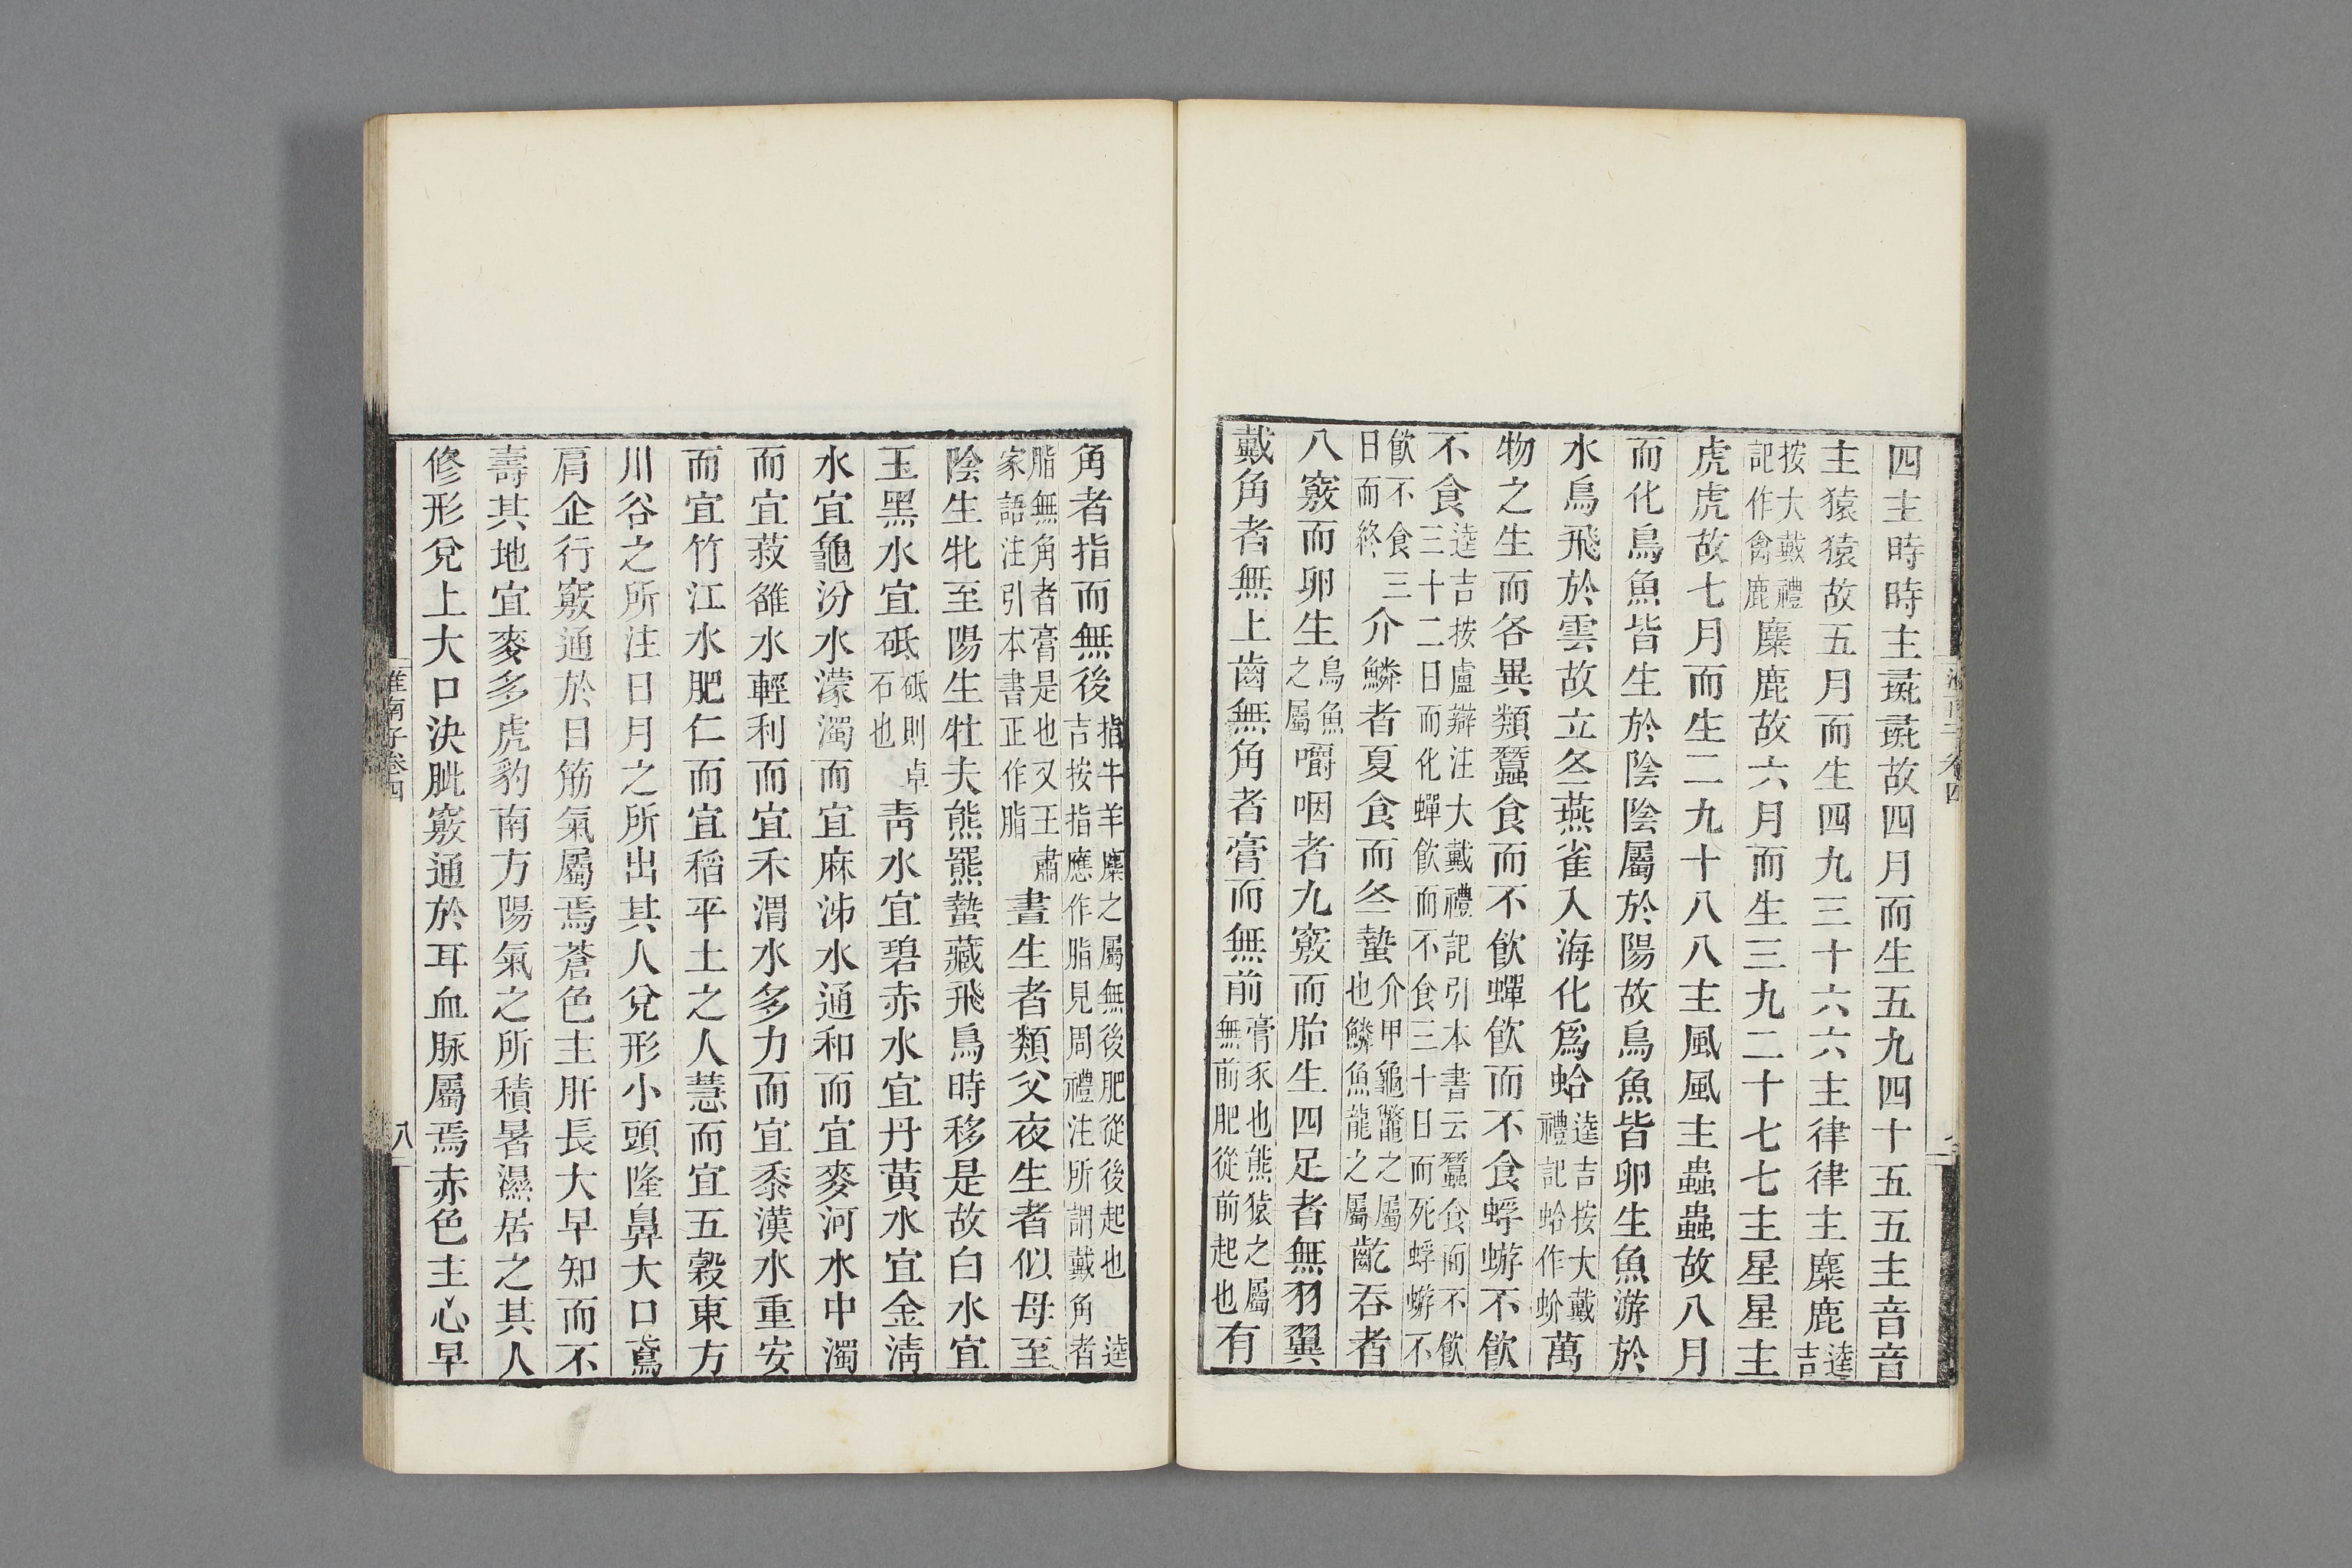 四主時時主彘彘故四月而生五九四十五五主音音
主猿猿故五月而生四九三十六六主律律主麋鹿逵吉
按大戴禮記作禽鹿麋鹿故六月而生三九二十七七主星星主
虎虎故七月而生二九十八八主風風主蟲蟲故八月
而化鳥魚皆生於陰陰屬於陽故鳥魚皆卵生魚游於
水鳥飛於雲故立冬燕雀入海化爲蛤逵吉按大戴禮記蛤作蚧萬
物之生而各異類蠶食而不飮蟬飮而不食蜉蝣不飮
不食逵吉按盧辯注大戴禮記引本書云蠶食而不飮三十二日而化蟬飮而不食三十日而死蜉蝣不
飮不食三日而終介鱗者夏食而冬蟄介甲龜鼈之屬也鱗魚龍之屬齕吞者
八竅而卵生鳥魚之屬嚼咽者九竅而胎生四足者無羽翼
戴角者無上齒無角者膏而無前膏豕也熊猿之屬無前肥從前起也有
角者指而無後指牛羊麋之屬無後肥從後起也逵吉按指應作脂見周禮注所謂戴角者
脂無角者膏是也又王肅家語注引本書正作脂晝生者類父夜生者似母至
陰生牝至陽生牡夫熊羆蟄藏飛鳥時移是故白水宜
玉黑水宜砥砥則卓石也靑水宜碧赤水宜丹黃水宜金淸
水宜龜汾水濛濁而宜麻泲水通和而宜麥河水中濁
而宜菽雒水輕利而宜禾渭水多力而宜黍漢水重安
而宜竹江水肥仁而宜稻平土之人慧而宜五穀東方
川谷之所注日月之所出其人兌形小頭隆鼻大口鳶
肩企行竅通於目筋氣屬焉蒼色主肝長大早知而不
壽其地宜麥多虎豹南方陽氣之所積暑濕居之其人
修形兌上大口決眦竅通於耳血脉屬焉赤色主心早
淮南子卷四
八